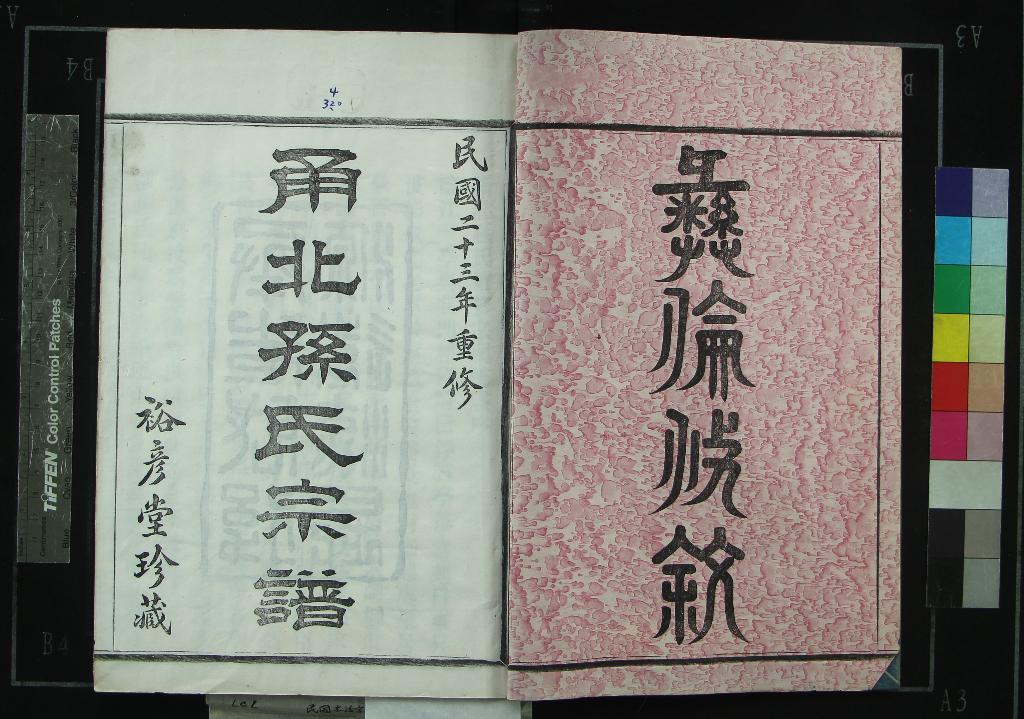 彝倫攸敘
民國二十三年重修
甬北孫氏宗譜
裕彥堂珍藏
4
320
TIFFEN Color Control Patches
A3
B4
B
A3
B4
A